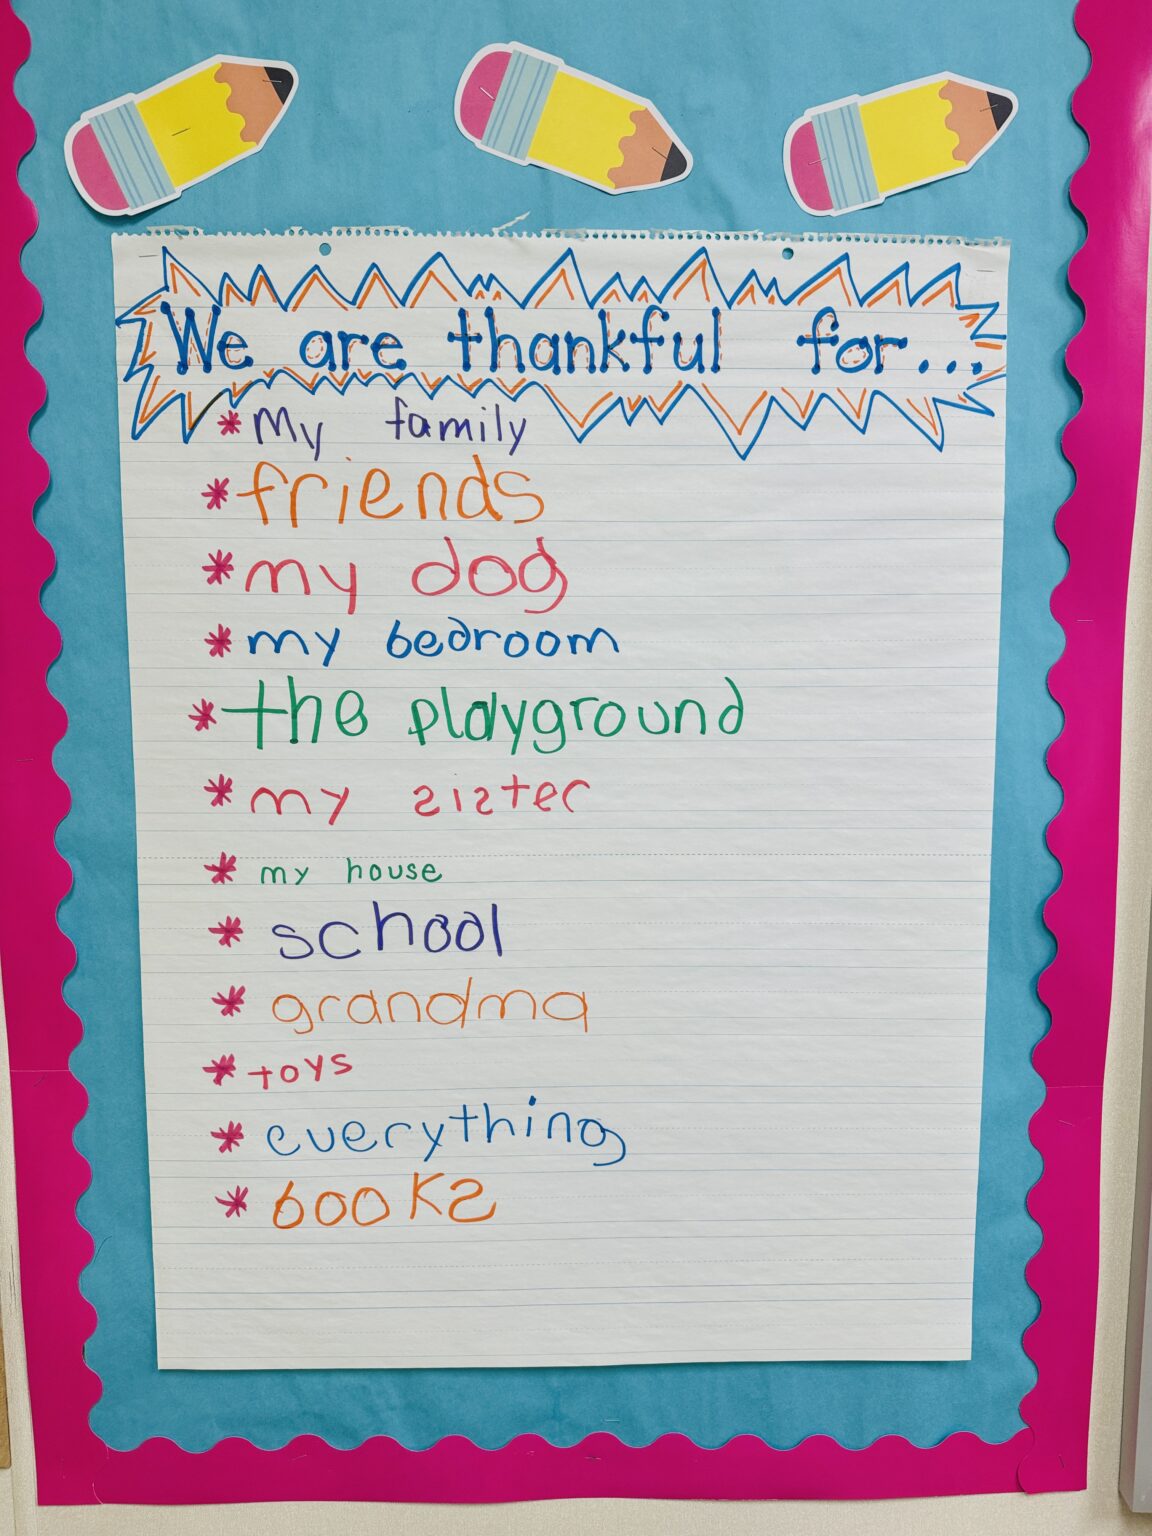 We are thankful for...
* My family
* friends
* my dog
* my bedroom
* the playground
* my sister
* my house
* school
* grandma
* toys
* everything
* books